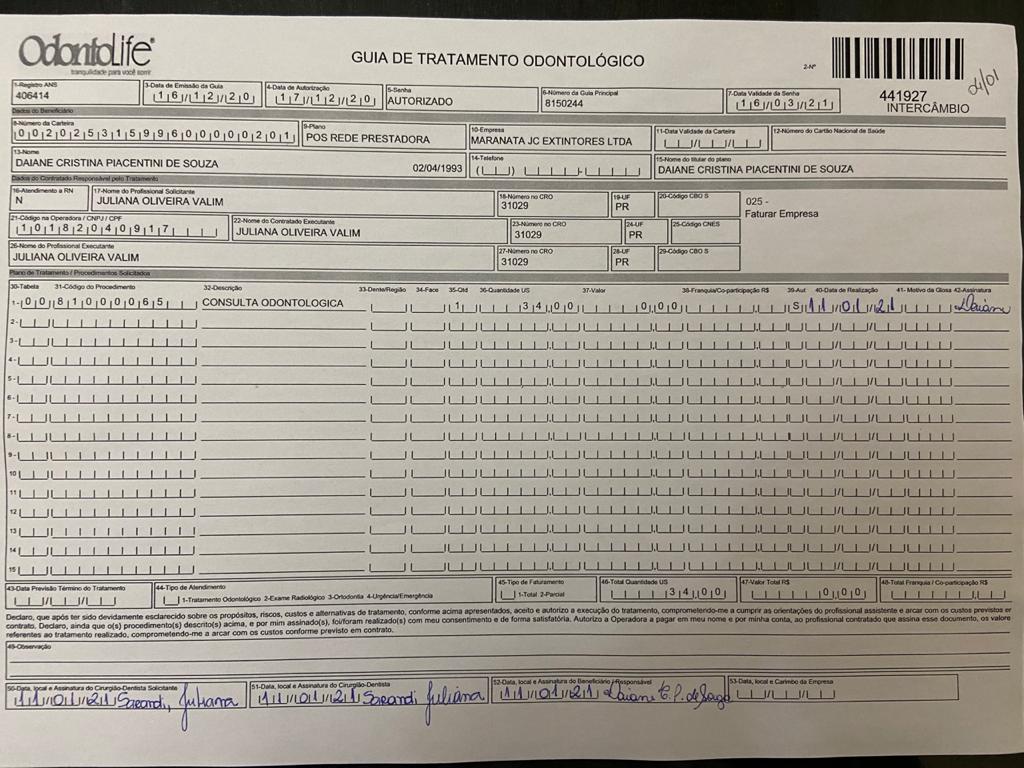 OdontoLife®
tranquilidade para você sorrir
GUIA DE TRATAMENTO ODONTOLÓGICO
2-Nº
441927
INTERCÂMBIO
04/01
1-Registro ANS
406414
3-Data de Emissão da Guia
16/12/20
4-Data de Autorização
17/12/20
5-Senha
AUTORIZADO
6-Número da Guia Principal
8150244
7-Data Validade da Senha
16/03/21
Dados do Beneficiário
8-Número da Carteira
00202531599600000201
9-Plano
POS REDE PRESTADORA
10-Empresa
MARANATA JC EXTINTORES LTDA
11-Data Validade da Carteira
12-Número do Cartão Nacional de Saúde
13-Nome
DAIANE CRISTINA PIACENTINI DE SOUZA 02/04/1993
14-Telefone
15-Nome do titular do plano
DAIANE CRISTINA PIACENTINI DE SOUZA
Dados do Contratado Responsável pelo Tratamento
16-Atendimento a RN
N
17-Nome do Profissional Solicitante
JULIANA OLIVEIRA VALIM
18-Número no CRO
31029
19-UF
PR
20-Código CBO S
025 -
Faturar Empresa
21-Código na Operadora / CNPJ / CPF
10182040917
22-Nome do Contratado Executante
JULIANA OLIVEIRA VALIM
23-Número no CRO
31029
24-UF
PR
25-Código CNES
26-Nome do Profissional Executante
JULIANA OLIVEIRA VALIM
27-Número no CRO
31029
28-UF
PR
29-Código CBO S
Plano de Tratamento / Procedimentos Solicitados
30-Tabela 31-Código do Procedimento 32-Descrição 33-Dente/Região 34-Face 35-Qtd 36-Quantidade US 37-Valor 38-Franquia/Co-participação R$ 39-Aut 40-Data de Realização 41- Motivo da Glosa 42-Assinatura
1- 00 81000065 CONSULTA ODONTOLOGICA 1 34,00 0,00 S 11/01/21 Daiane
2-
3-
4-
5-
6-
7-
8-
9-
10
11
12
13
14
15
43-Data Previsão Término do Tratamento
44-Tipo de Atendimento
1-Tratamento Odontológico 2-Exame Radiológico 3-Ortodontia 4-Urgência/Emergência
45-Tipo de Faturamento
1-Total 2-Parcial
46-Total Quantidade US
34,00
47-Valor Total R$
0,00
48-Total Franquia / Co-participação R$
Declaro, que após ter sido devidamente esclarecido sobre os propósitos, riscos, custos e alternativas de tratamento, conforme acima apresentados, aceito e autorizo a execução do tratamento, comprometendo-me a cumprir as orientações do profissional assistente e arcar com os custos previstos em
contrato. Declaro, ainda que o(s) procedimento(s) descrito(s) acima, e por mim assinado(s), foi/foram realizado(s) com meu consentimento e de forma satisfatória. Autorizo a Operadora a pagar em meu nome e por minha conta, ao profissional contratado que assina esse documento, os valores
referentes ao tratamento realizado, comprometendo-me a arcar com os custos conforme previsto em contrato.
49-Observação
50-Data, local e Assinatura do Cirurgião-Dentista Solicitante
11/01/21 Sarandi, Juliana
51-Data, local e Assinatura do Cirurgião-Dentista
11/01/21 Sarandi Juliana
52-Data, local e Assinatura do Beneficiário / Responsável
11/01/21 Daiane C. P. de Souza
53-Data, local e Carimbo da Empresa